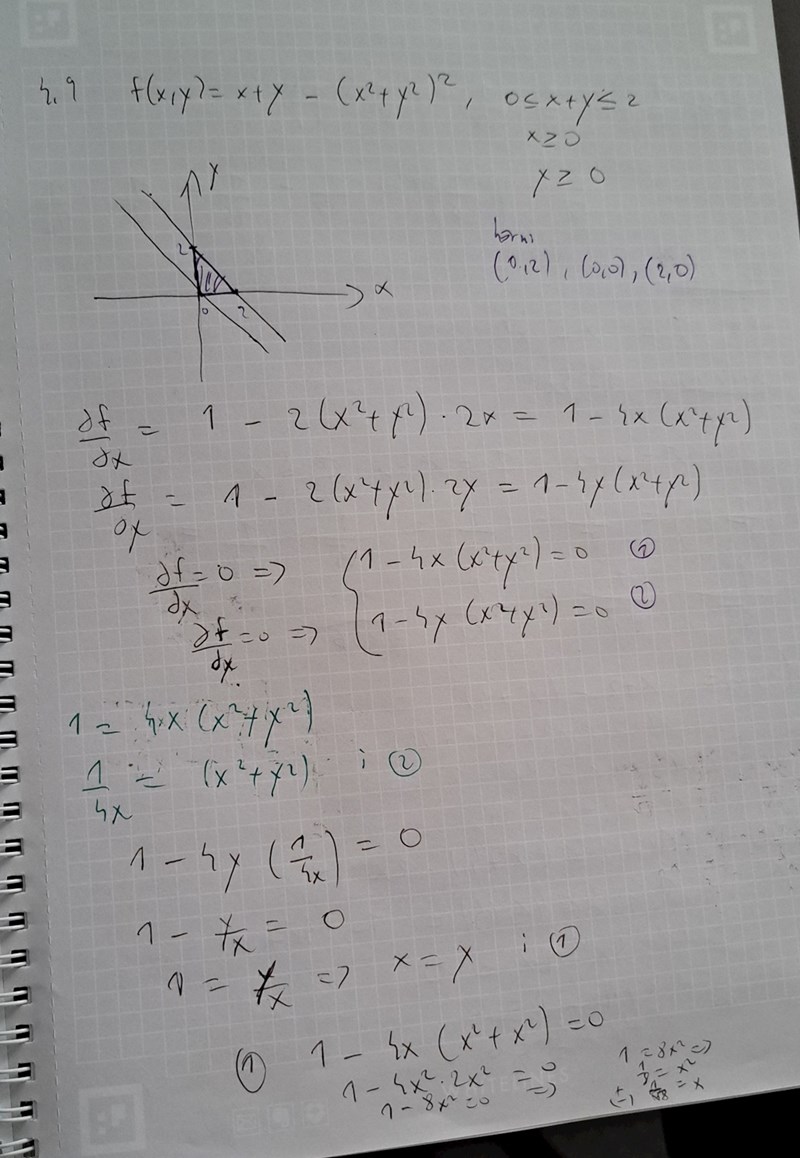 4.9 f(x,y) = x+y - (x²+y²)², 0 ≤ x+y ≤ 2
x ≥ 0
y ≥ 0
y
2
0 2 x
hörni
(0,2), (0,0), (2,0)
∂f/∂x = 1 - 2(x²+y²)·2x = 1 - 4x(x²+y²)
∂f/∂y = 1 - 2(x²+y²)·2y = 1 - 4y(x²+y²)
∂f/∂x = 0 => { 1 - 4x(x²+y²) = 0 ①
∂f/∂y = 0 => 1 - 4y(x²+y²) = 0 ②
1 = 4x(x²+y²)
1/4x = (x²+y²) i ②
1 - 4y(1/4x) = 0
1 - y/x = 0
1 = y/x => x = y i ①
① 1 - 4x(x²+x²) = 0
1 - 4x²·2x² = 0
1 - 8x² = 0 =>
1 = 8x² =>
1/8 = x²